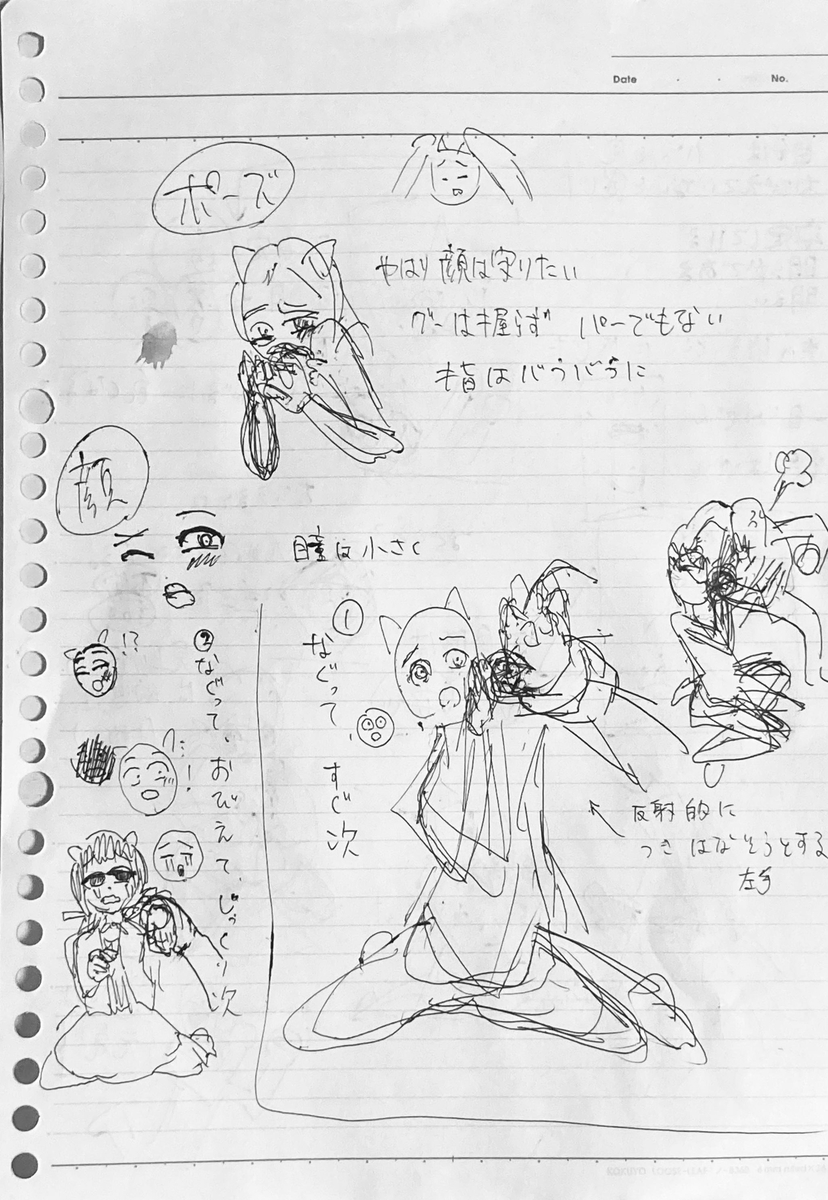 Date
No.
ポーズ
やはり 顔は守りたい
グーは握らず パーでもない
指はバラバラに
顔
瞳は小さく
!?
①
なぐって、すぐ次
②なぐって、おびえて、じっくり次
反射的に
つきはなそうとする
左手